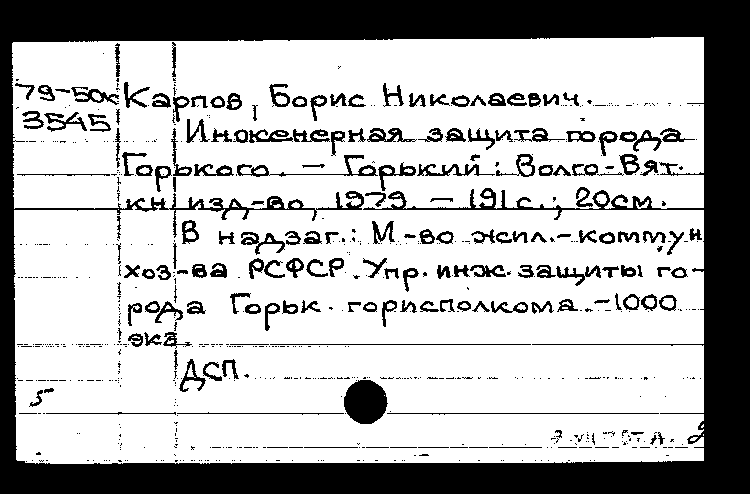 79-50к Карпов, Борис Николаевич.
3545 Инженерная защита города
Горького. — Горький : Волго-Вят.
кн. изд-во, 1979. — 191 с. ; 20см.
В надзаг.: М-во жил.-коммун
хоз-ва РСФСР. Упр. инж. защиты го-
рода Горьк. горисполкома.-1000
экз.
ДСП.
5